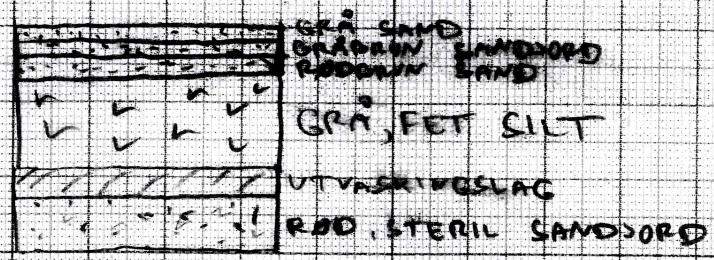 GRÅ SAND
GRÅBRUN SANDJORD
RØDBRUN SAND
GRÅ, FET SILT
UTVASKINGSLAG
RØD, STERIL SANDJORD